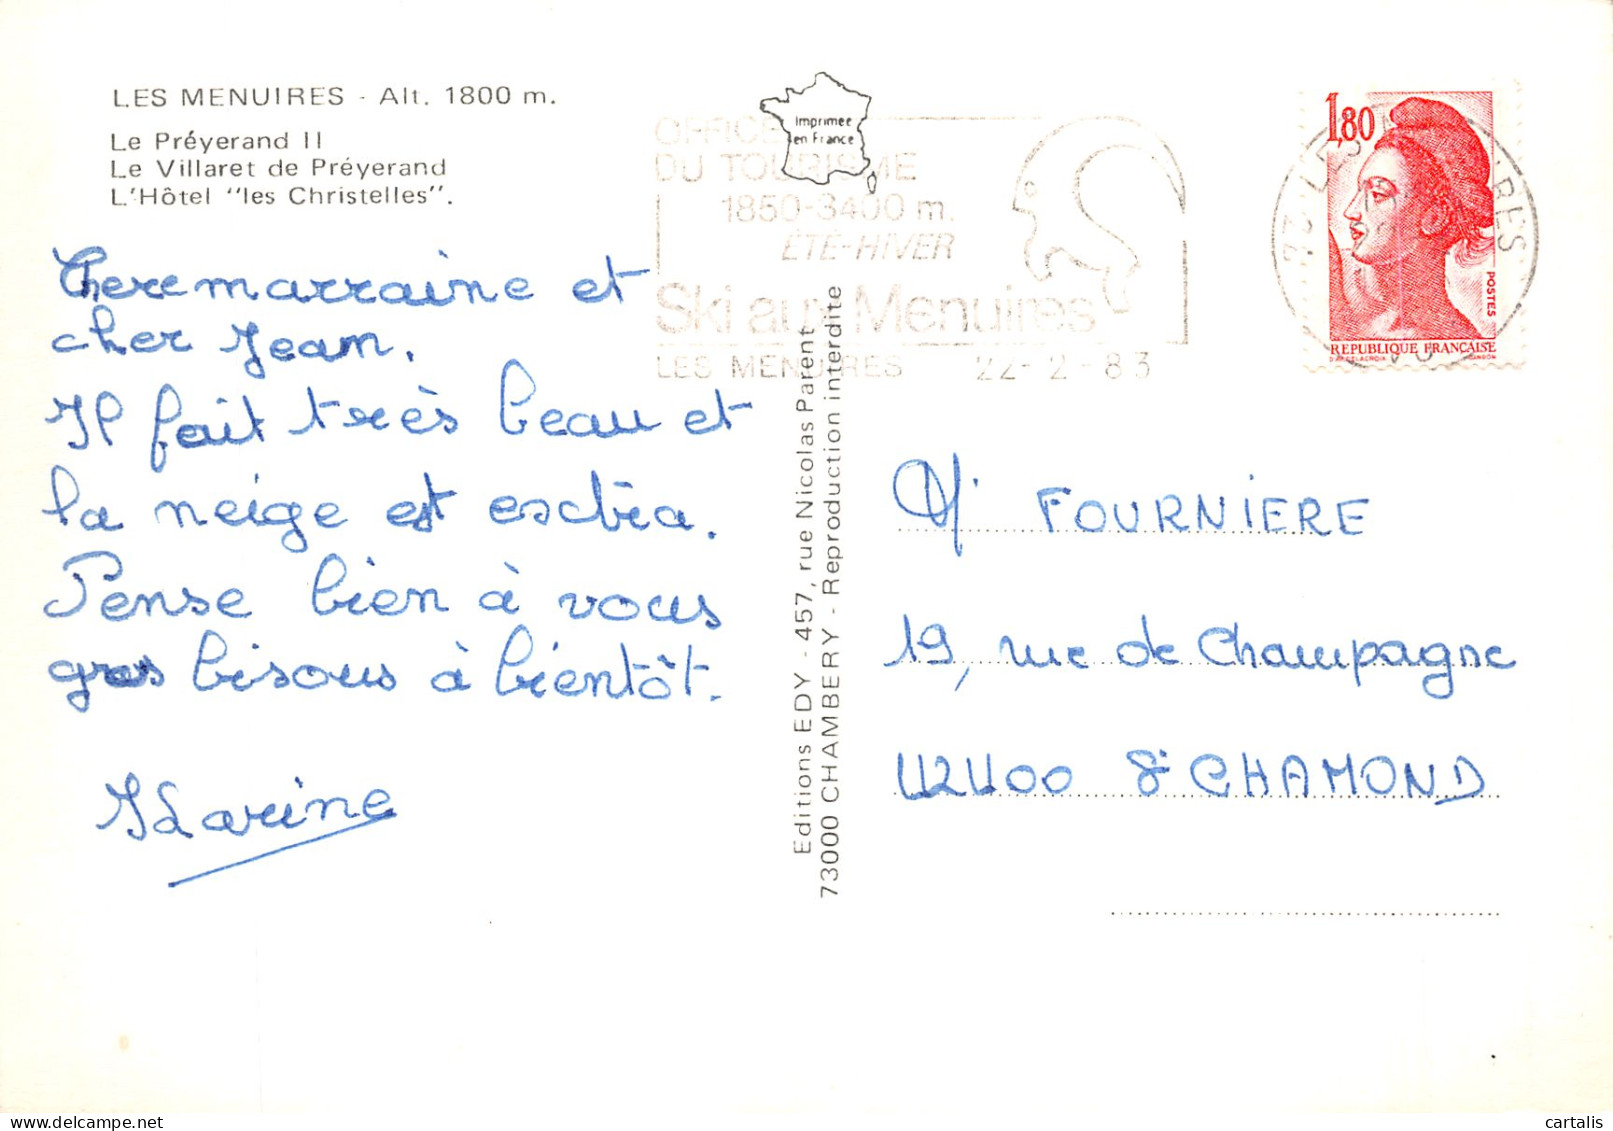 LES MENUIRES - Alt. 1800 m.
Le Préyerand II
Le Villaret de Préyerand
L'Hôtel "les Christelles".
Chere marraine et
cher Jean.
Il fait très beau et
la neige est esctra.
Pense bien à vous
gros bisous à bientôt.
Karine
Imprimée
en France
OFFICE
DU TOURISME
1850-3400 m.
ÉTÉ-HIVER
Ski aux Menuires
LES MENUIRES 22-2-83
Editions EDY - 457, rue Nicolas Parent
73000 CHAMBERY - Reproduction interdite
1,80
POSTES
REPUBLIQUE FRANÇAISE
M. FOURNIERE
19, rue de Champagne
42400 St CHAMOND
cartalis